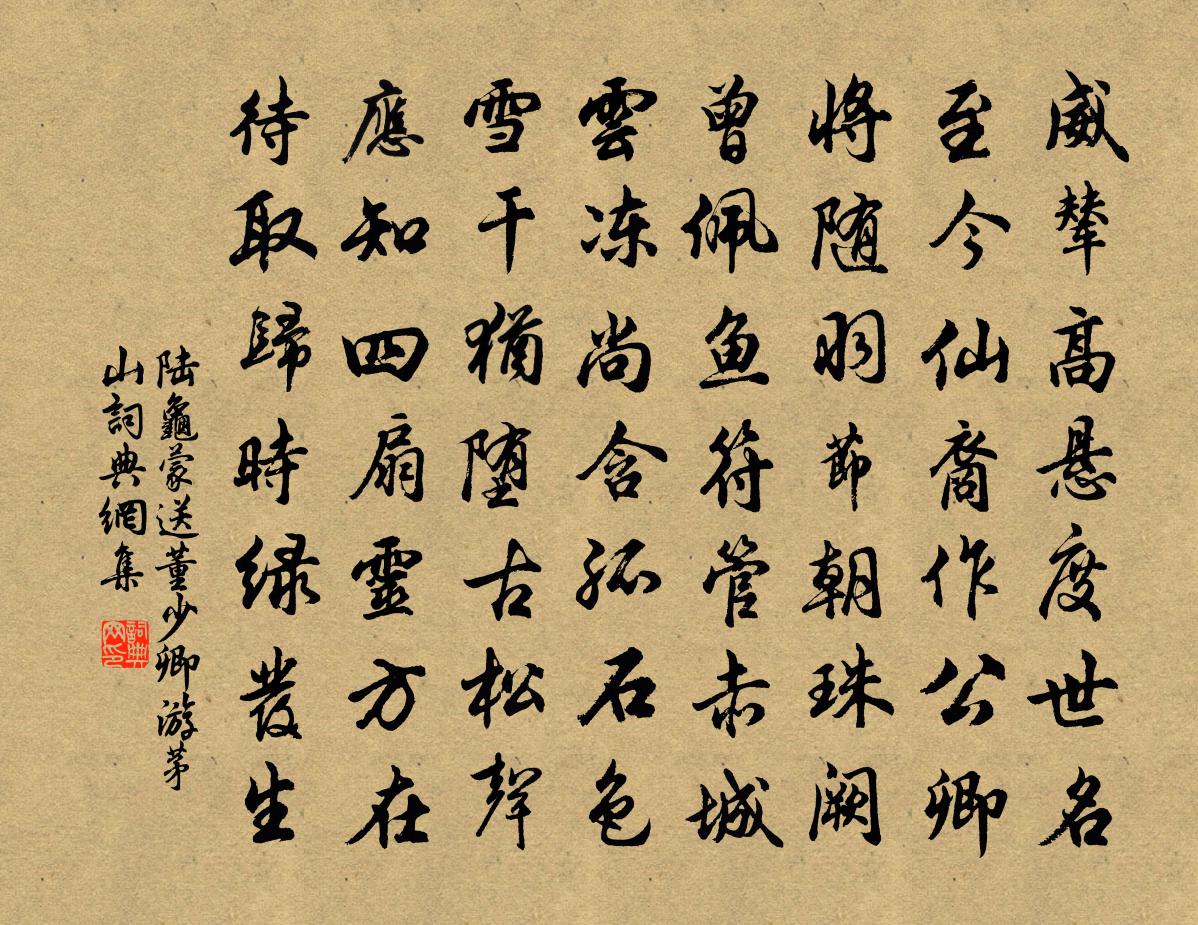 威辇高悬度世名
至今仙裔作公卿
将随羽节朝珠阙
曾佩鱼符管赤城
雲冻尚含孤石色
雪干犹堕古松聲
應知四扇靈方在
待取歸時绿发生
陆龜蒙送董少卿游茅
山詞典網集
詞典网印